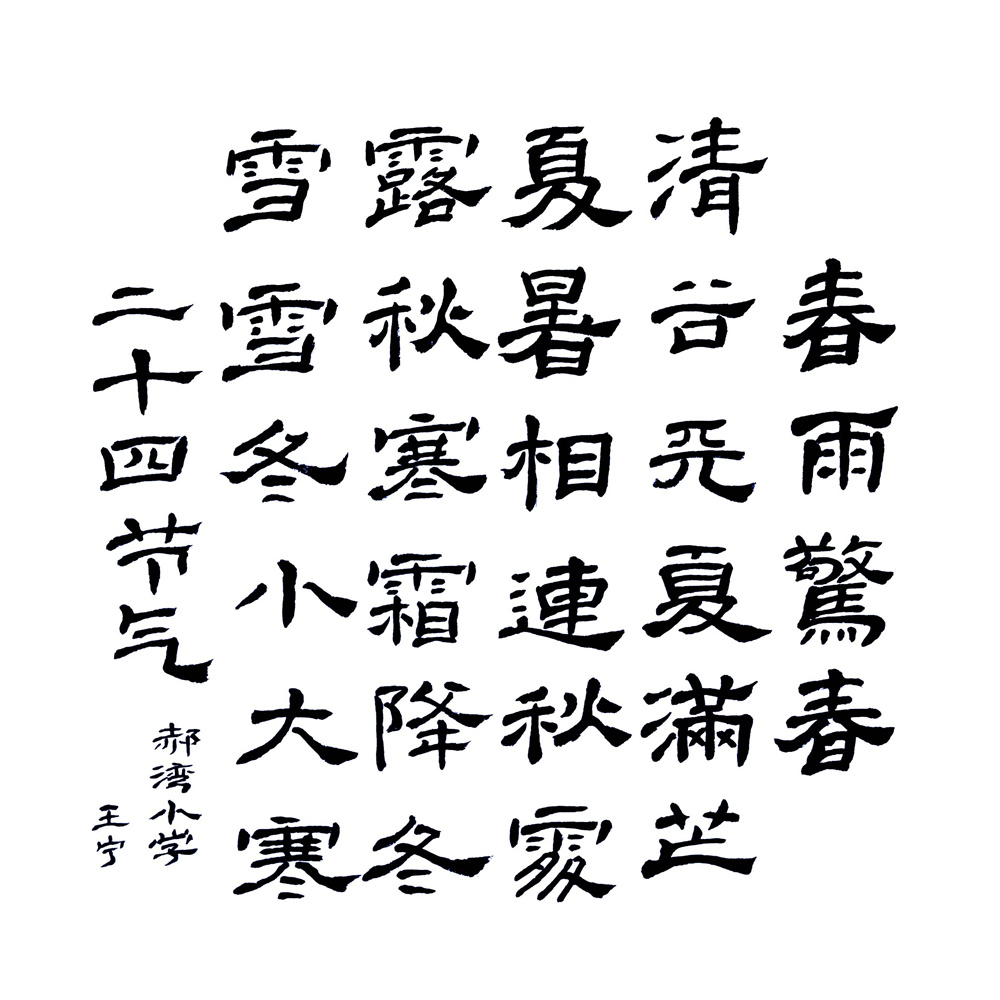 春雨驚春
清谷天夏滿芒
夏暑相連秋處
露秋寒霜降冬
雪雪冬小大寒
二十四节气
郝湾小学
王宁